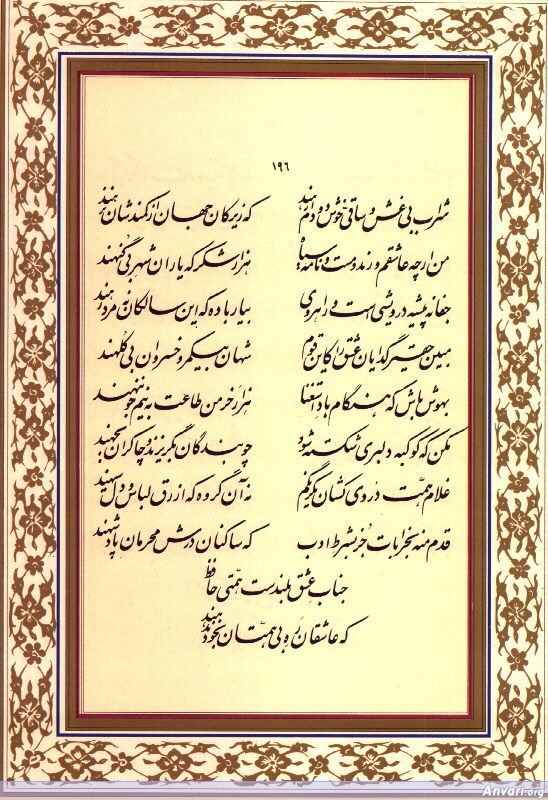 ۱۹۶
شراب بی غش و ساقی خوش دو دام رهند که زیرکان جهان از کمندشان نرهند
من ارچه عاشقم و رند و مست و نامه سیاه هزار شکر که یاران شهر بی گنهند
جفا نه پیشه درویشی است و راهروی بیار باده که این سالکان نه مرد رهند
مبین حقیر گدایان عشق را کاین قوم شهان بی کمر و خسروان بی کلهند
بهوش باش که هنگام باد استغنا هزار خرمن طاعت به نیم جو ننهند
مکن که کوکبه دلبری شکسته شود چو بندگان بگریزند و چاکران بجهند
غلام همت دردی کشان یکرنگم نه آن گروه که ازرق لباس و دل سیهند
قدم منه بخرابات جز بشرط ادب که ساکنان درش محرمان پادشهند
جناب عشق بلندست همتی حافظ
که عاشقان ره بی همتان بخود ندهند
Anvari.org